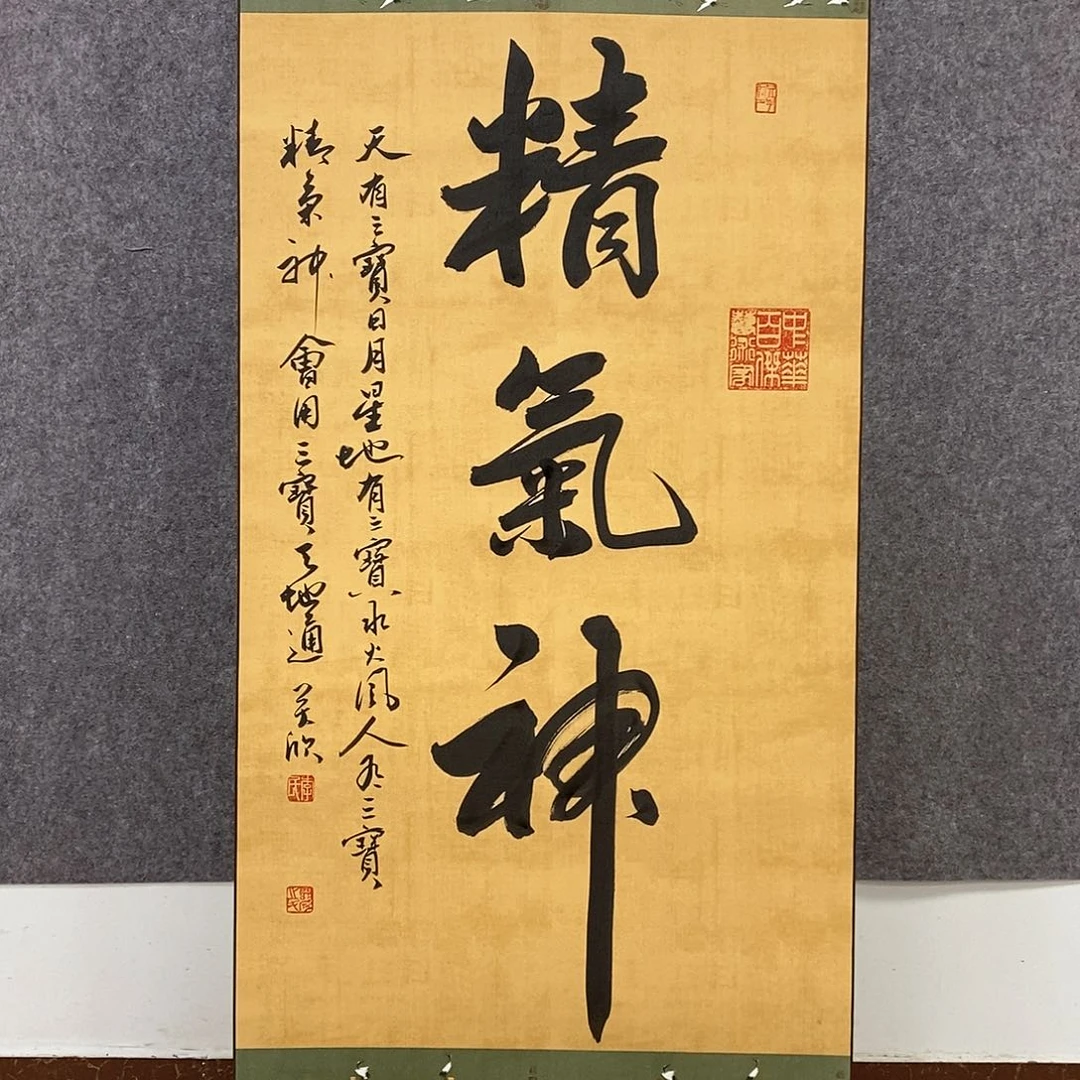 精氣神
天有三寶日月星地有三寶水火風人有三寶
精氣神會用三寶天地通
中華
百傑